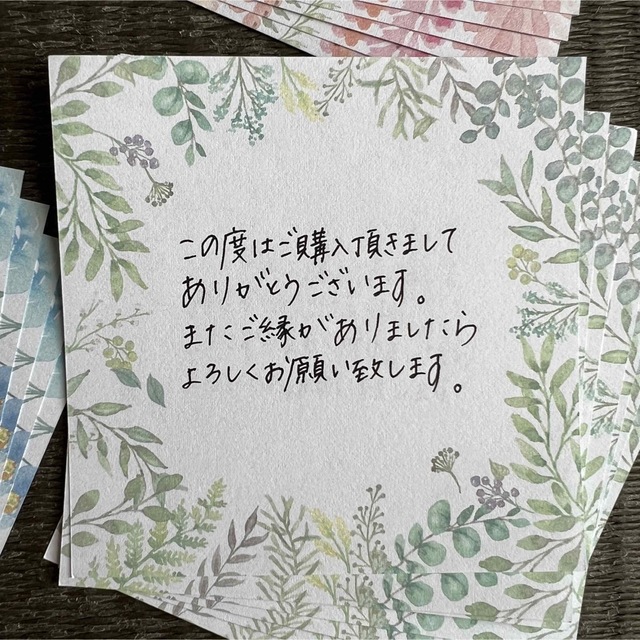 この度はご購入頂きまして
ありがとうございます。
またご縁がありましたら
よろしくお願い致します。